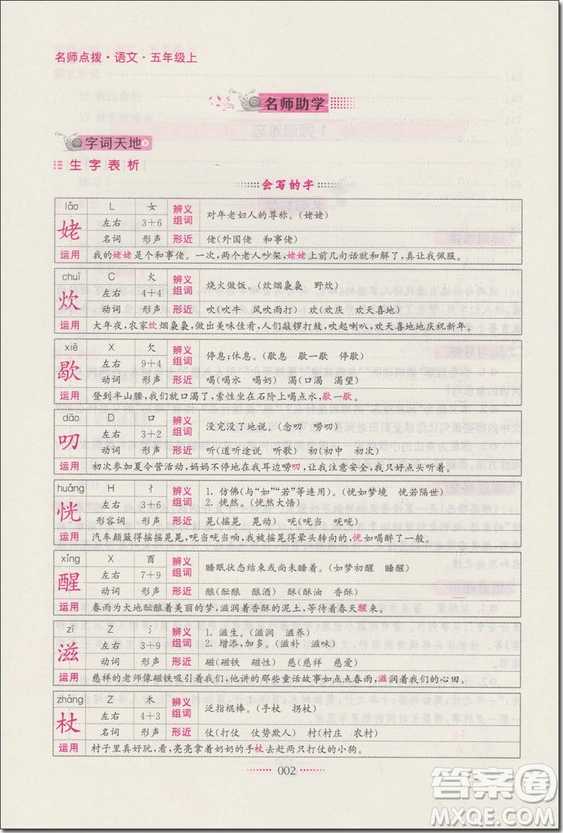 名师点拨·语文·五年级上
名师助学
字词天地
生字表析
会写的字
lǎo L 女 辨义组词 对年老妇人的尊称。(姥姥)
姥 左右 3+6
名词 形声 形近 佬(外国佬 和事佬)
运用 我的姥姥是个和事佬。一次,两个老人吵架,姥姥上前几句话就和解了,真让我佩服。
chuī C 火 辨义组词 烧火做饭。(炊烟袅袅 野炊)
炊 左右 4+4
动词 形声 形近 吹(吹牛 风吹雨打) 欢(欢庆 欢天喜地)
运用 大年夜,农家炊烟袅袅,做出美味佳肴;人们敲锣打鼓,吹起喇叭,欢天喜地地庆祝新年。
xiē X 欠 辨义组词 停息;休息。(歇息 歇一歇 停歇)
歇 左右 9+4
动词 形声 形近 喝(喝水 喝奶) 渴(口渴 渴望)
运用 登到半山腰,我们就口渴了,索性坐在石阶上喝点水,歇一歇。
dāo D 口 辨义组词 没完没了地说。(念叨 唠叨)
叨 左右 3+2
动词 形声 形近 听(道听途说 听歌) 初(初中 初次)
运用 初次参加夏令营活动,妈妈不厌其烦地唠叨,让我注意安全,我只好点头听着。
huǎng H 忄 辨义组词 1. 仿佛(与“如”“若”等连用)。(恍如梦境 恍若隔世)
恍 左右 3+6 2. 恍然。(恍然大悟)
形容词 形声 形近 晃(摇晃 晃动) 咣(咣当 咣咣)
运用 汽车颠簸得摇摇晃晃,咣当咣当响,我被摇晃得晕头转向的,恍如喝醉了。
xǐng X 酉 辨义组词 睡眠状态结束或尚未睡着。(如梦初醒 睡醒)
醒 左右 7+9
动词 形声 形近 酿(酝酿 酿酒) 酥(香酥 酥油)
运用 春雨为大地酝酿着美丽的梦,滋润着香酥的泥土,万物在蒙蒙的春天醒来。
zī Z 氵 辨义组词 1. 滋生。(滋润 滋养)
滋 左右 3+9 2. 增添,加多。(滋补 滋味)
动词 形声 形近 磁(磁铁 磁性) 慈(慈祥 慈爱)
运用 慈祥的老师像磁铁吸引着我们,他讲的那些童话故事如点点春雨,滋润着我们的心田。
zhàng Z 木 辨义组词 泛指棍棒。(手杖 拐杖)
杖 左右 4+3
名词 形声 形近 仗(打仗 仗势欺人) 村(村庄 农村)
运用 村子里真好玩,看,亮亮拿着奶奶的手杖去赶两只打仗的小狗。
002
答案圈